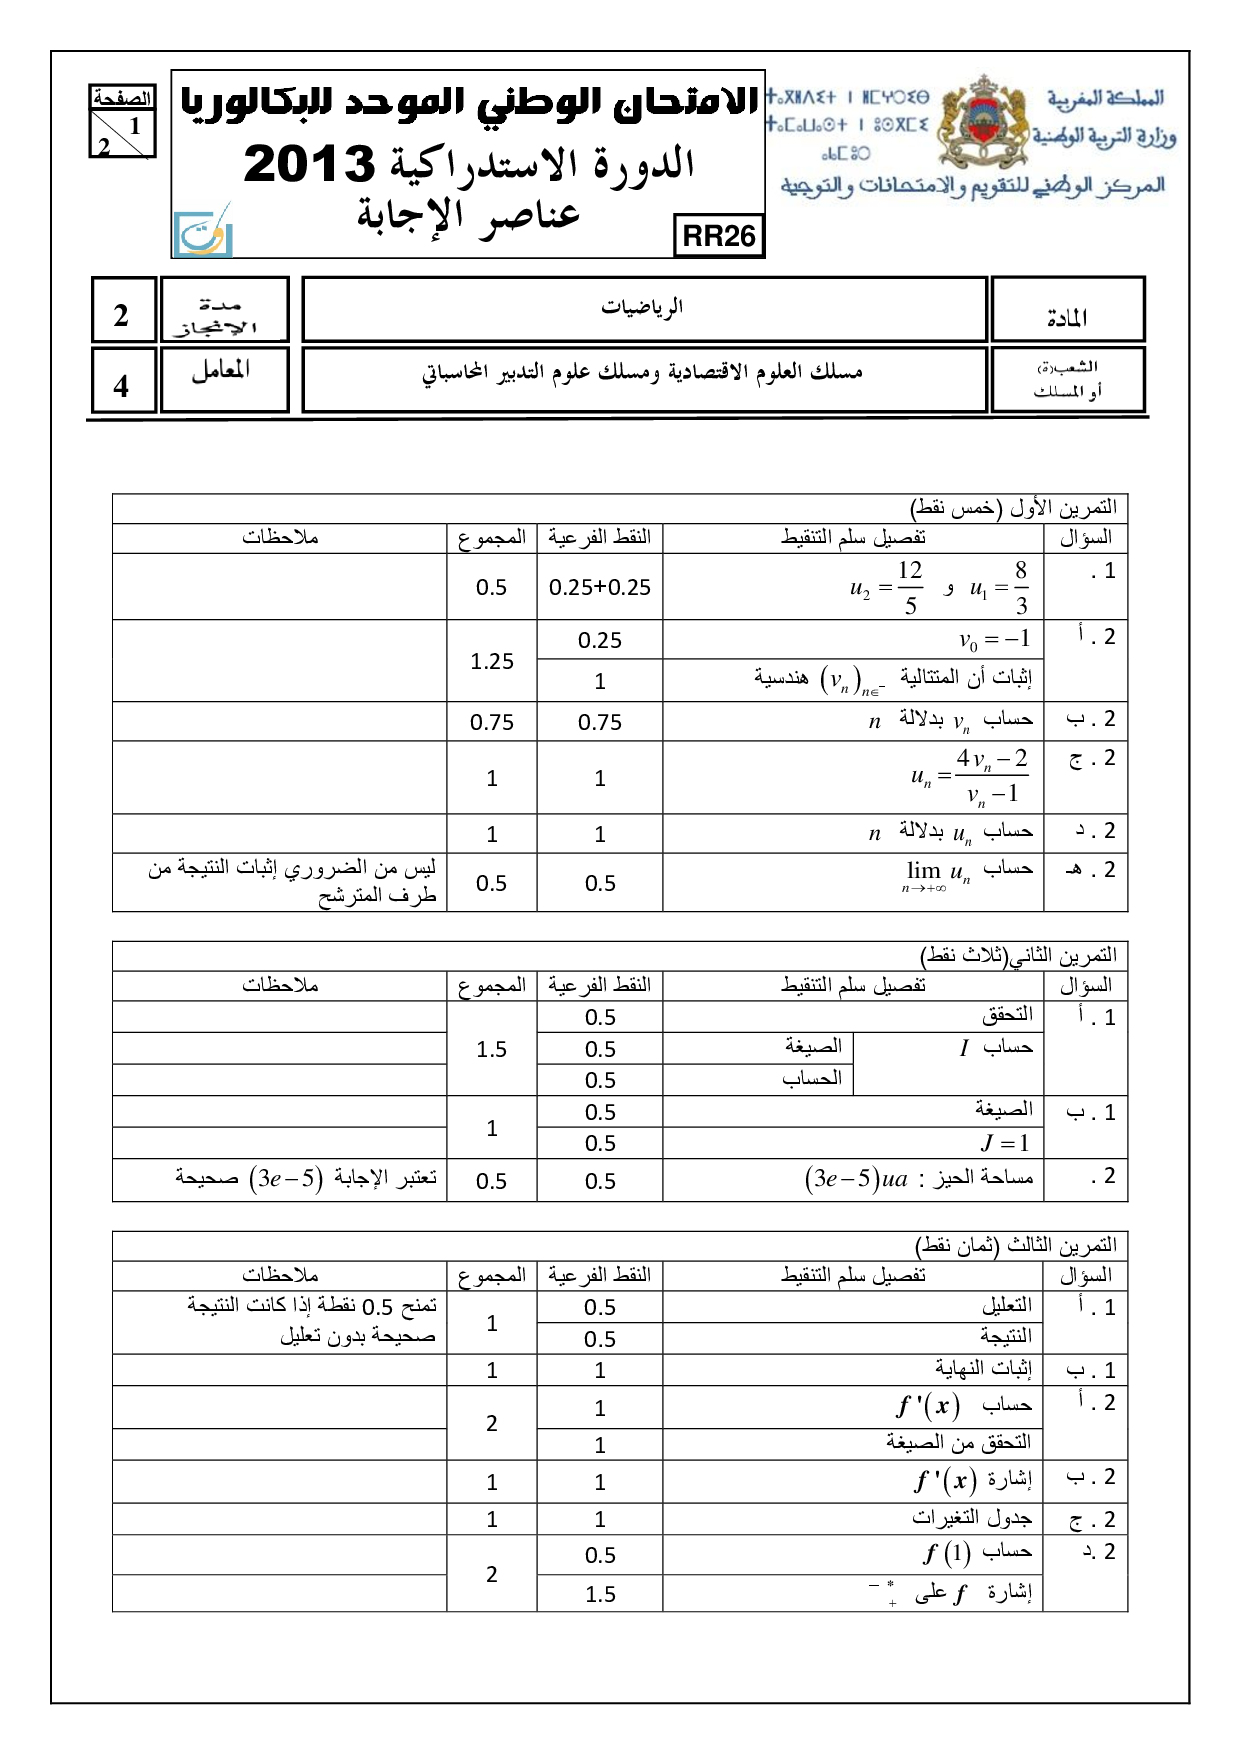 المملكة المغربية
وزارة التربية الوطنية
المركز الوطني للتقويم والامتحانات والتوجيه
الصفحة
1
2
الامتحان الوطني الموحد للبكالوريا
الدورة الاستدراكية 2013
عناصر الإجابة
RR26
المادة الرياضيات مدة الإنجاز 2
الشعب(ة) أو المسلك مسلك العلوم الاقتصادية ومسلك علوم التدبير المحاسباتي المعامل 4
التمرين الأول (خمس نقط)
السؤال تفصيل سلم التنقيط النقط الفرعية المجموع ملاحظات
1 . u₁ = 8/3 و u₂ = 12/5 0.25+0.25 0.5
2 . أ v₀ = −1 0.25 1.25
إثبات أن المتتالية (vₙ)ₙ∈ هندسية 1
2 . ب حساب vₙ بدلالة n 0.75 0.75
2 . ج uₙ = (4vₙ − 2)/(vₙ − 1) 1 1
2 . د حساب uₙ بدلالة n 1 1
2 . هـ حساب lim uₙ n→+∞ 0.5 0.5 ليس من الضروري إثبات النتيجة من
طرف المترشح
التمرين الثاني(ثلاث نقط)
السؤال تفصيل سلم التنقيط النقط الفرعية المجموع ملاحظات
1 . أ التحقق 0.5 1.5
حساب I الصيغة 0.5
الحساب 0.5
1 . ب الصيغة 0.5 1
J = 1 0.5
2 . مساحة الحيز : (3e − 5)ua 0.5 0.5 تعتبر الإجابة (3e − 5) صحيحة
التمرين الثالث (ثمان نقط)
السؤال تفصيل سلم التنقيط النقط الفرعية المجموع ملاحظات
1 . أ التعليل 0.5 1 تمنح 0.5 نقطة إذا كانت النتيجة
النتيجة 0.5 صحيحة بدون تعليل
1 . ب إثبات النهاية 1 1
2 . أ حساب f '(x) 1 2
التحقق من الصيغة 1
2 . ب إشارة f '(x) 1 1
2 . ج جدول التغيرات 1 1
2 .د حساب f (1) 0.5 2
إشارة f على 1.5